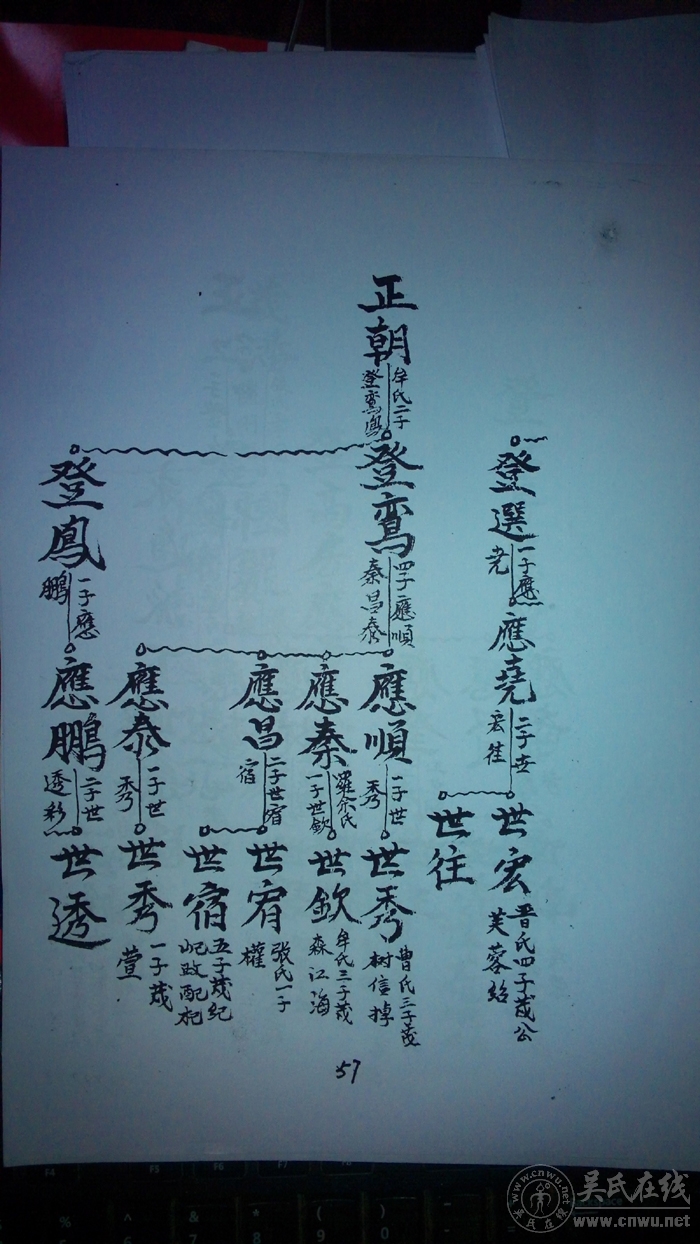 正朝
牟氏二子
登鸞鳳
登選
一子應
尧
登鸞
四子應順
秦昌泰
登鳳
一子應
鵬
應堯
二子世
宏往
應順
一子世
秀
應秦
羅宗氏
一子世欽
應昌
二子世宥
宿
應泰
一子世
秀
應鵬
二子世
透彩
世宏
晋氏四子茂公
芙蓉紹
世往
世秀
曹氏三子茂
树信掉
世欽
牟氏三子茂
森江海
世宥
張氏一子
權
世宿
五子茂纪
政配杞
世秀
一子茂
萱
世透
57
吴氏在线
www.cnwu.net
吴氏在線
www.cnwu.net
F4
F5
F6
F7
F8
%
5
^
6
&
7
*
8
(
9
)
0